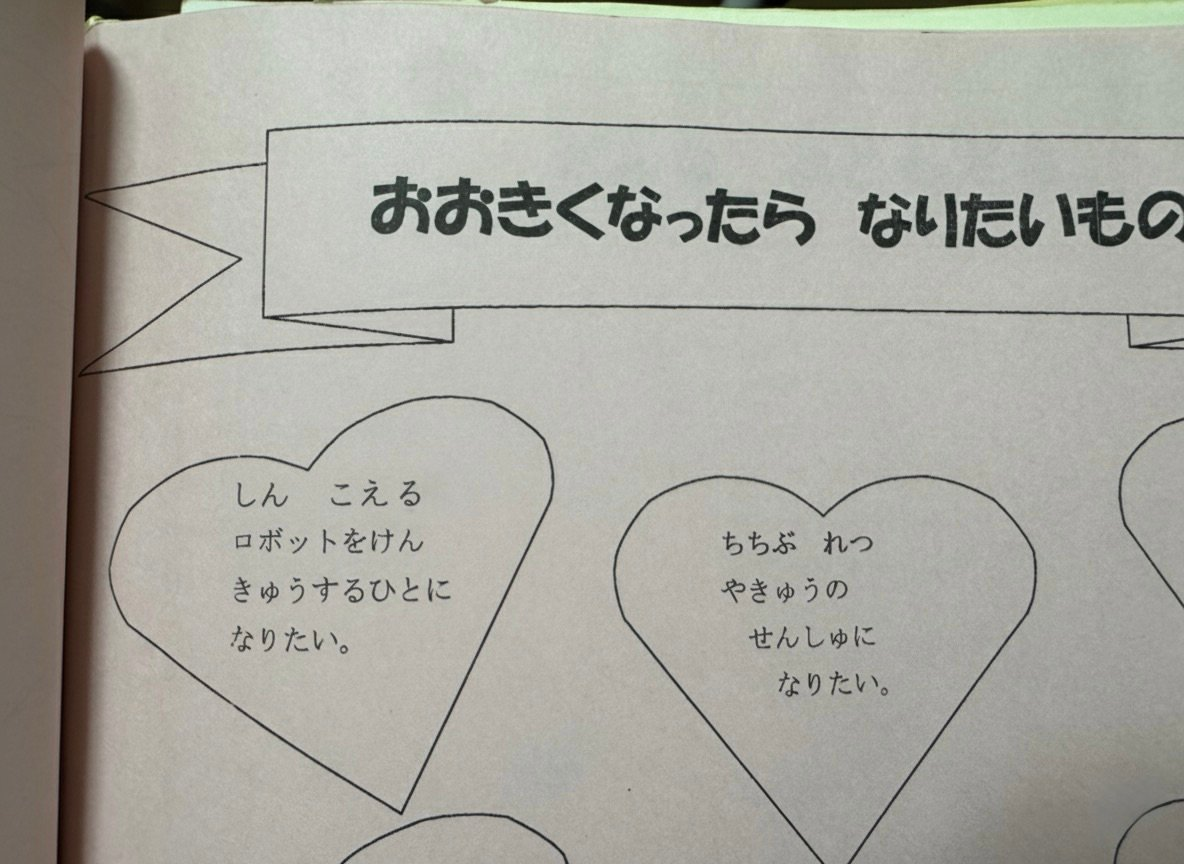 おおきくなったら　なりたいもの
しん　こえる
ロボットをけん
きゅうするひとに
なりたい。
ちちぶ　れつ
やきゅうの
せんしゅに
なりたい。